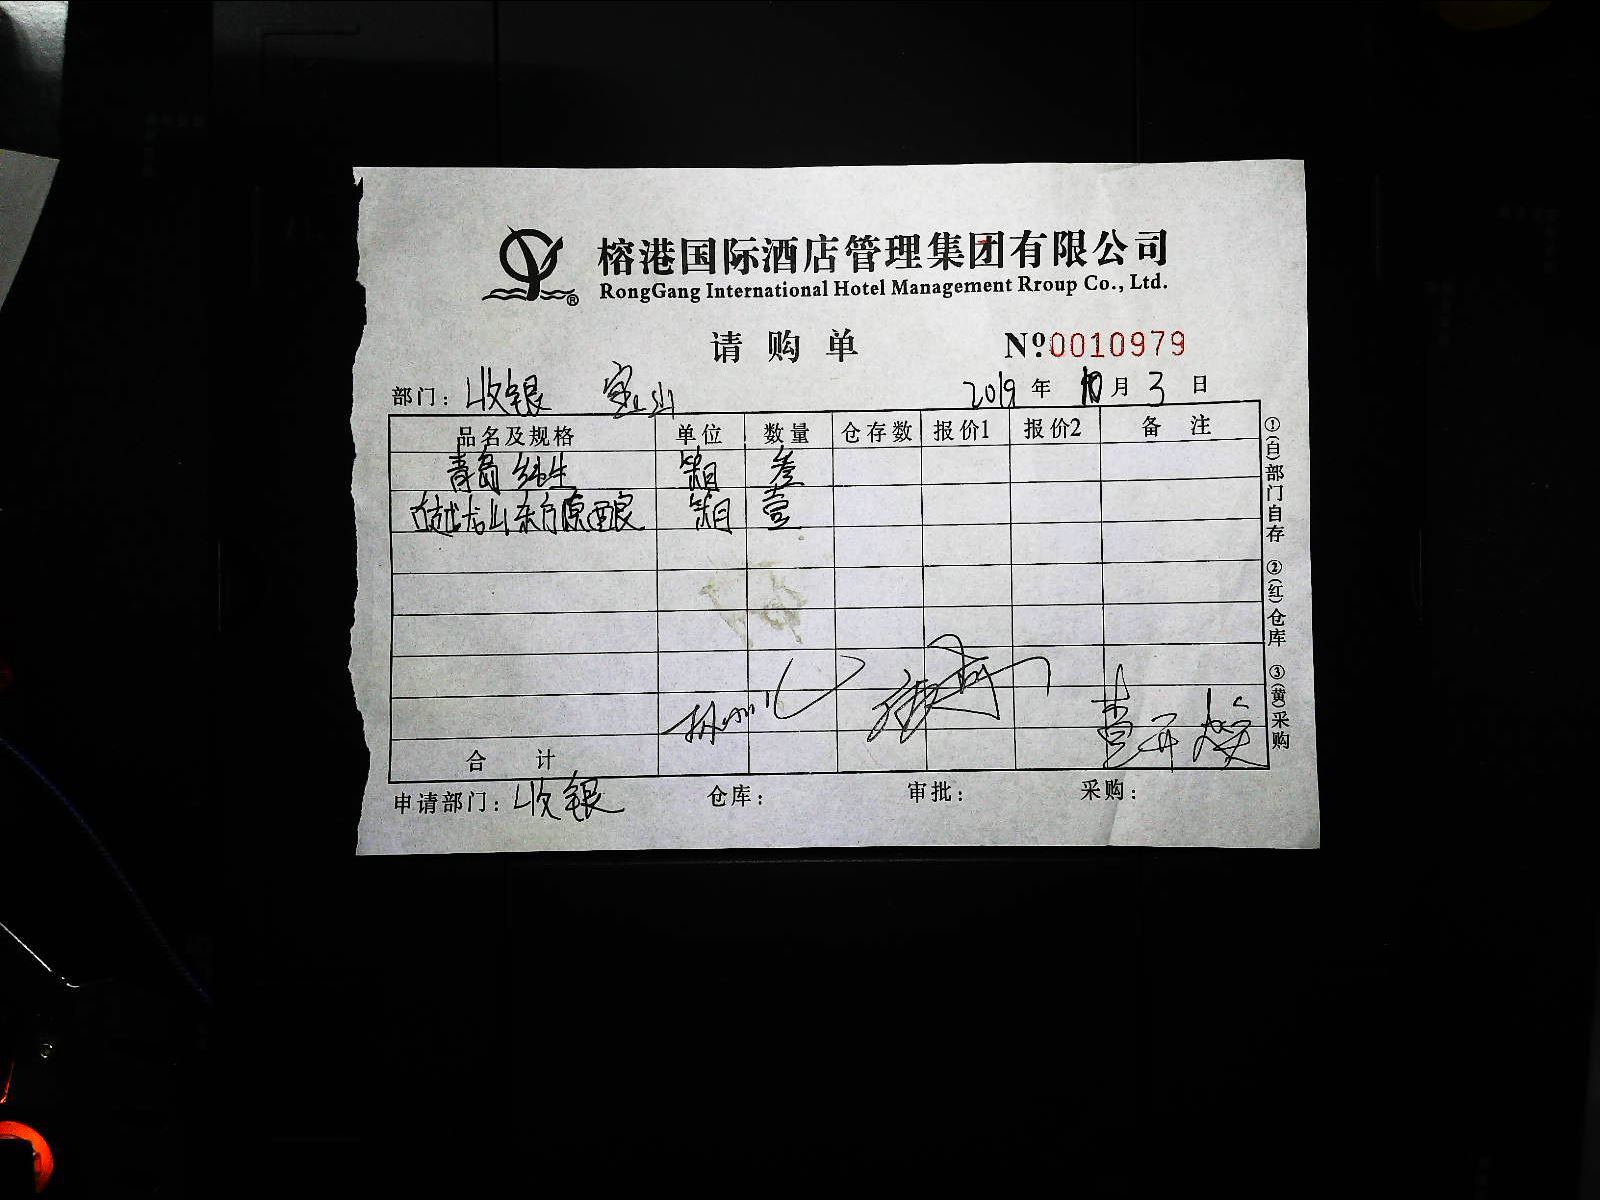 榕港国际酒店管理集团有限公司
RongGang International Hotel Management Rroup Co., Ltd.
请购单 Nº0010979
部门：收银 宝山 2019年10月3日
品名及规格 单位 数量 仓存数 报价1 报价2 备注
青岛纯生 箱 叁
古越龙山东方原酿 箱 壹
合计
申请部门：收银 仓库： 审批： 采购：
①(白)部门自存 ②(红)仓库 ③(黄)采购